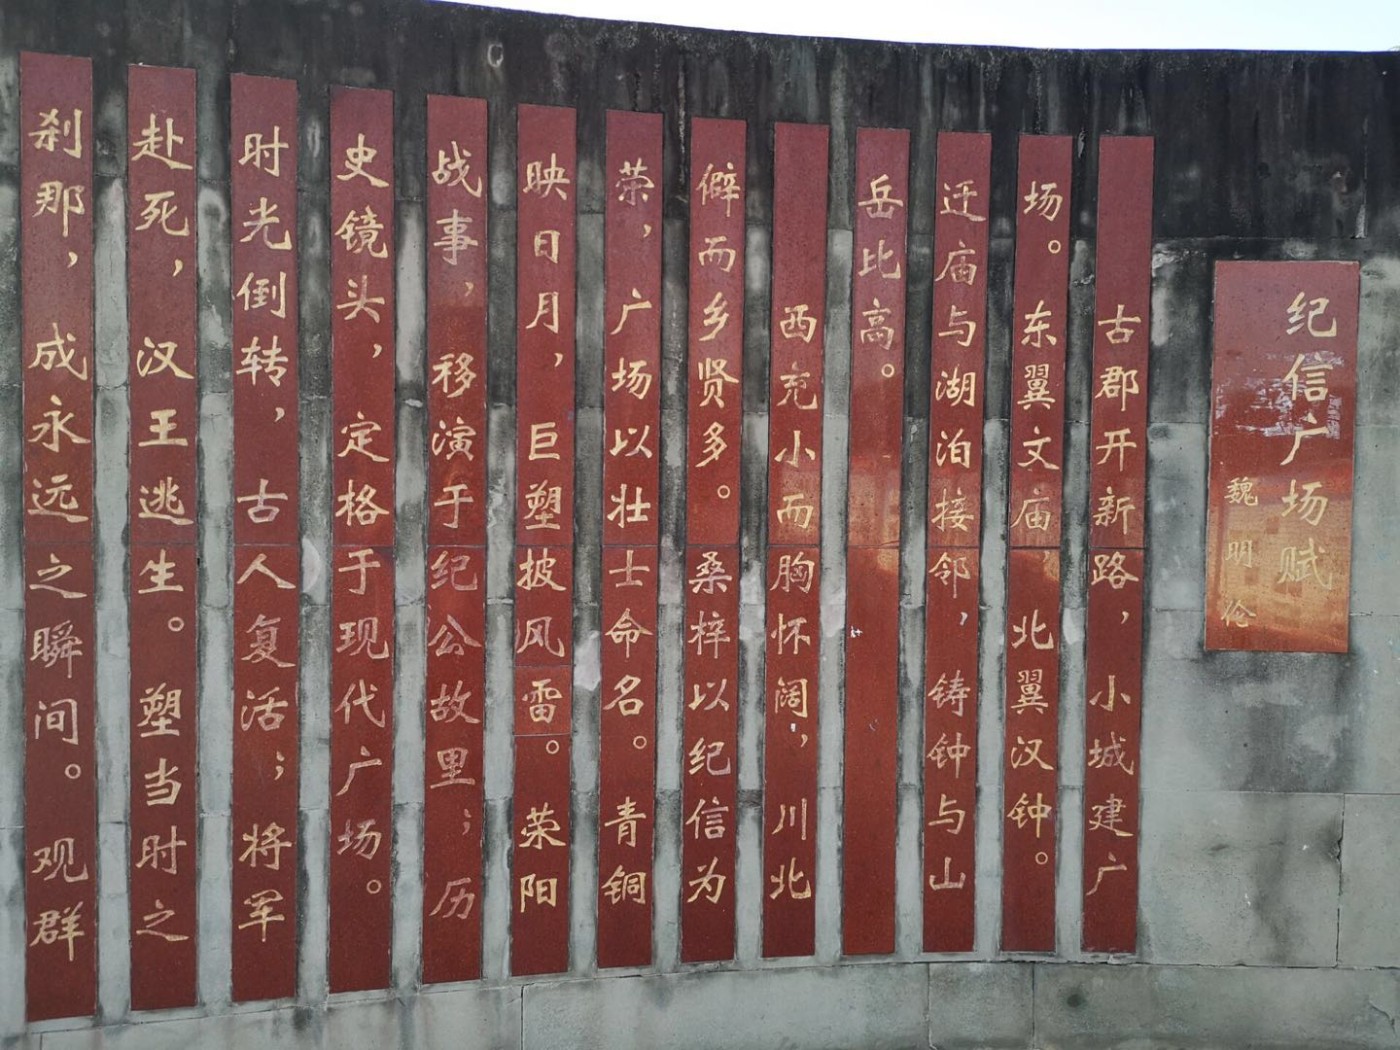 纪信广场赋
魏明伦
古郡开新路，小城建广
场。东翼文庙，北翼汉钟。
迁庙与湖泊接邻，铸钟与山
岳比高。
西充小而胸怀阔，川北
僻而乡贤多。桑梓以纪信为
荣，广场以壮士命名。青铜
映日月，巨塑披风雷。荣阳
战事，移演于纪公故里；历
史镜头，定格于现代广场。
时光倒转，古人复活；将军
赴死，汉王逃生。塑当时之
刹那，成永远之瞬间。观群